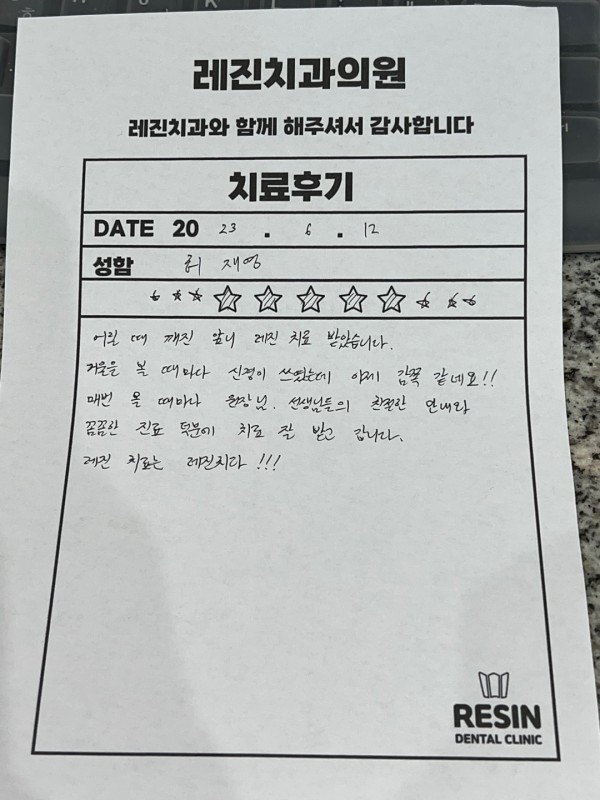 레진치과의원
레진치과와 함께 해주셔서 감사합니다
치료후기
DATE 20 23 . 6 . 12
성함 최재영
어릴 때 깨진 앞니 레진 치료 받았습니다.
거울을 볼 때마다 신경이 쓰였는데 이제 감쪽 같네요!!
매번 올 때마다 원장님. 선생님들의 친절한 안내와
꼼꼼한 진료 덕분에 치료 잘 받고 갑니다.
레진 치료는 레진치과 !!!
RESIN
DENTAL CLINIC